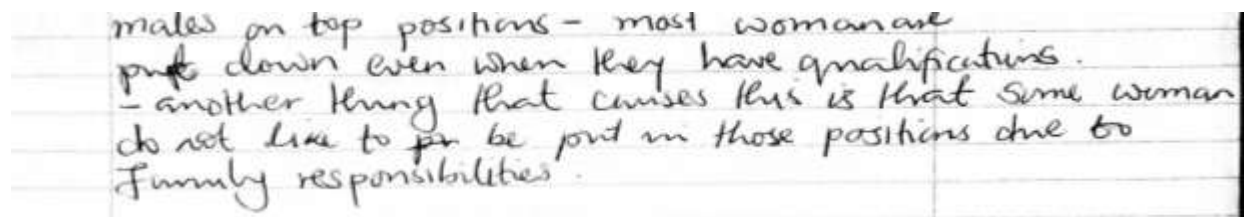 males on top positions - most woman are
put down even when they have qualifications.
- another thing that causes this is that some woman
do not like to be put in those positions due to
Family responsibilities.